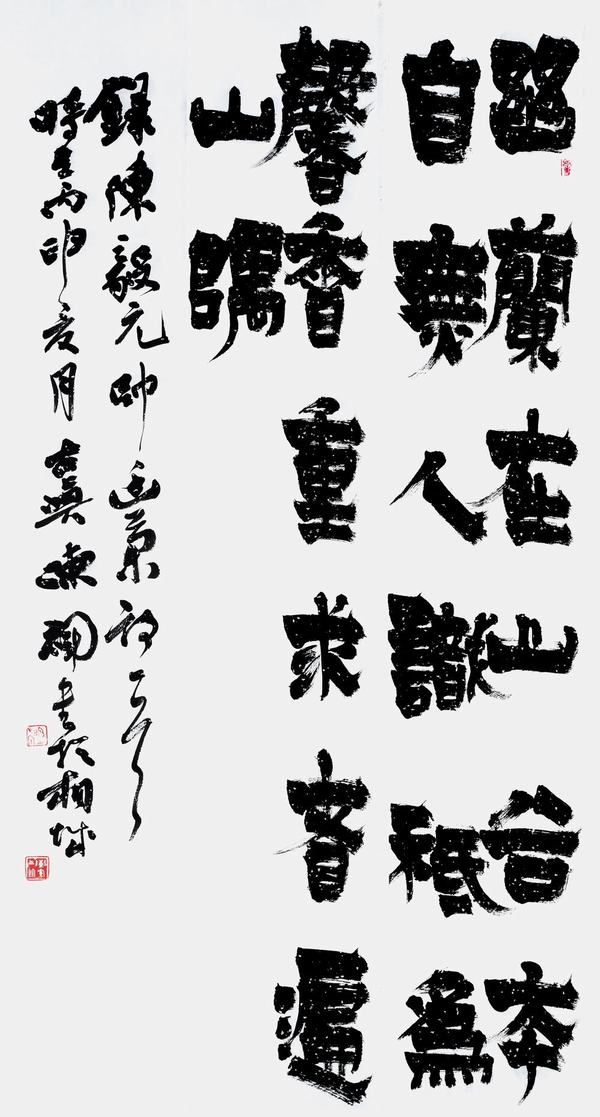 幽蘭在山谷本
自無人識祇爲
馨香重求者遍
山隅
錄陳毅元帥幽蘭詩一首
時在丙申夏月古吳陳書於相城